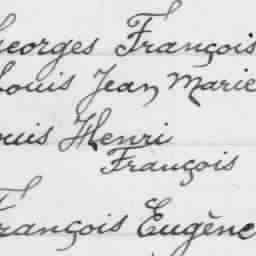 Georges François
Louis Jean Marie
Louis Henri
François
François Eugène